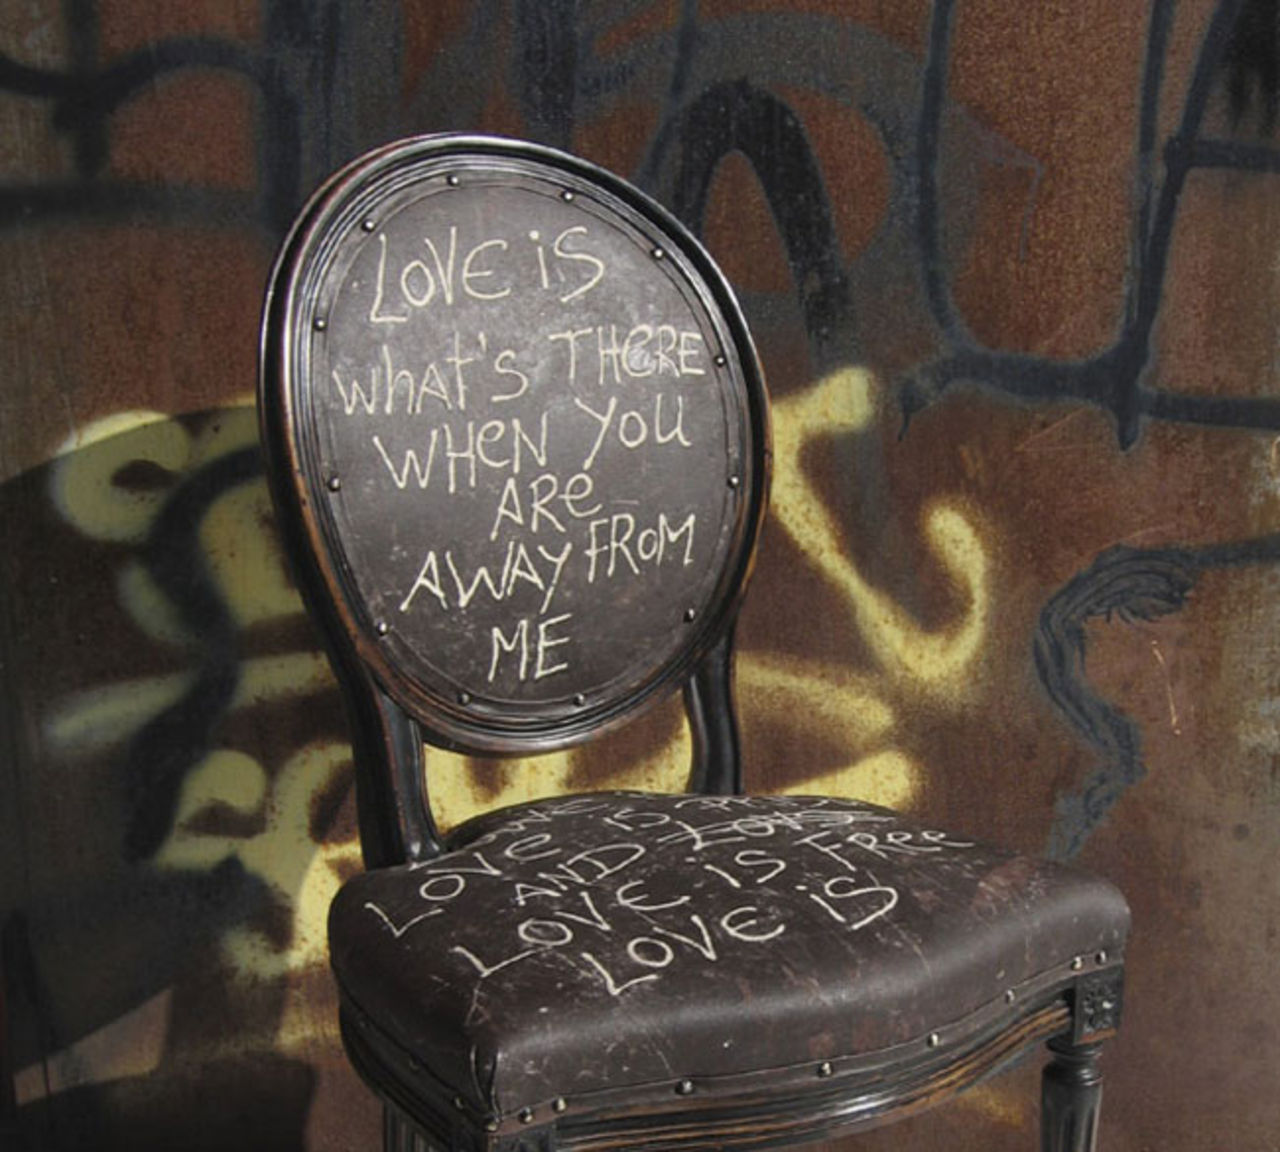 LOVE iS
whAt's THeRE
WHeN YOU
ARe
AWAY FROM
ME
LOVE IS
AND LOVe
LOVE iS FRee
LOVE iS